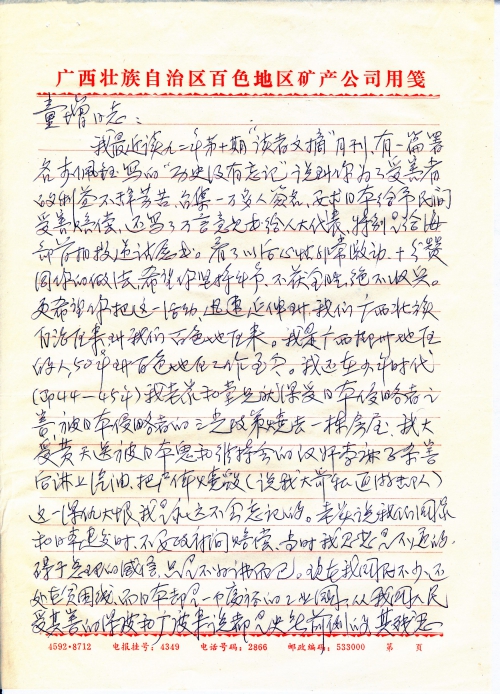 广西壮族自治区百色地区矿产公司用笺
童增同志：
我最近读九二年第十期"读者文摘"月刊，有一篇署
名 写的"历史没有忘记"说到你为了受害者
的利益不辞劳苦，合集一万多人签名，要求日本给予民间
受害赔偿，还写了万言意见书给人大代表，特别是给海
部首相投递请愿书。看了以后心情非常激动，十分赞
同你的做法，希望你坚持斗争，不获全胜，绝不收兵。
更希望你把这一活动，迅速延伸到我们广西壮族
自治区来，到我们百色地区来。我是广西柳州地区
的人，50年到百色地区工作至今。我还在少年时代
(即44—45年)我老家和童 就深受日本侵略者之
害，被日本侵略者的三光政策烧去一栋房屋，我大
哥黄天送被日本鬼和维持会的汉奸李 杀害
后淋上汽油，把尸体烧毁(说我大哥私通游击队)
这一深仇大恨，我是永远不会忘记的。老实说我们国家
和日本建交时，不要政府间赔偿，当时我思想是不通的，
碍于总理的威信，只是不好讲而已。现在我国有不少还
处在贫困线，而日本却是一个高标的工业国，从我国人民
受其害的深度和广度来说都是史无前例的，其残忍
4592·8712 电报挂号：4349 电话号码：2866 邮政编码：533000 第 页